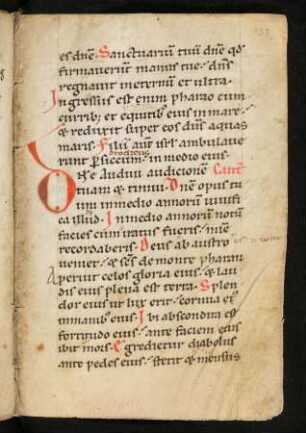 es dñe. Sanctuariũ tuũ dñe qđ
firmauerunt manus tue. dñs
regnauit ineternũ et ultra.
Ingressus est enim pharao cum
curribȝ et equitibȝ eius in mare.
& reduxit super eos dñs aquas
maris. Filii autẽ isrl ambulaue
runt ꝑ siccum. in medio eius.
Dñe Audiui audicionem
tuam & timui. Dñe opus tu
um inmedio annorũ uiuifi
ca illud. Inmedio annorũ notũ
facies cum iratus fueris. miẽe
recordaberis. Deus ab austro
ueniet. & scs̃ de monte pharan
Aperuit celos gloria eius. & lau
dis eius plena est terra. Splen
dor eius ut lux erit. cornua
inmanibȝ eius. Ibi abscondita est
fortitudo eius. ante faciem eius
ibit mors. Egredietur diabolus
ante pedes eius. stetit & mensus